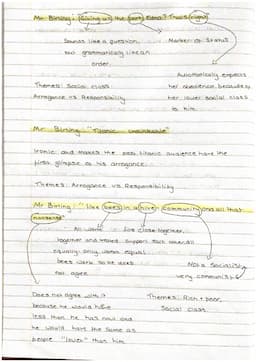 Mr Birling: "Giving us the port Edna? That's right"
Sounds like a question
but grammatically like an
order.
Marker of Status
Automatically expects
her obedience because of
her lower social class
to him.
Themes: Social class
Arrogance vs Responsibility
Mr Birling: "Titanic unsinkable"
Ironic and makes the post titanic audience have the
first glimpse at his arrogance.
Themes: Arrogance vs Responsibility
Mr Birling: "like bees in a hive community and all that
nonsense"
All work
together and
equality only works
bees work so he
not agree
live close together,
support each other
equal
Not a Socialist
very communist
Does not agree with it
because he would have
less than he has now and
he would have the same as
people "lower" than him
Themes: Rich + poor,
Social class